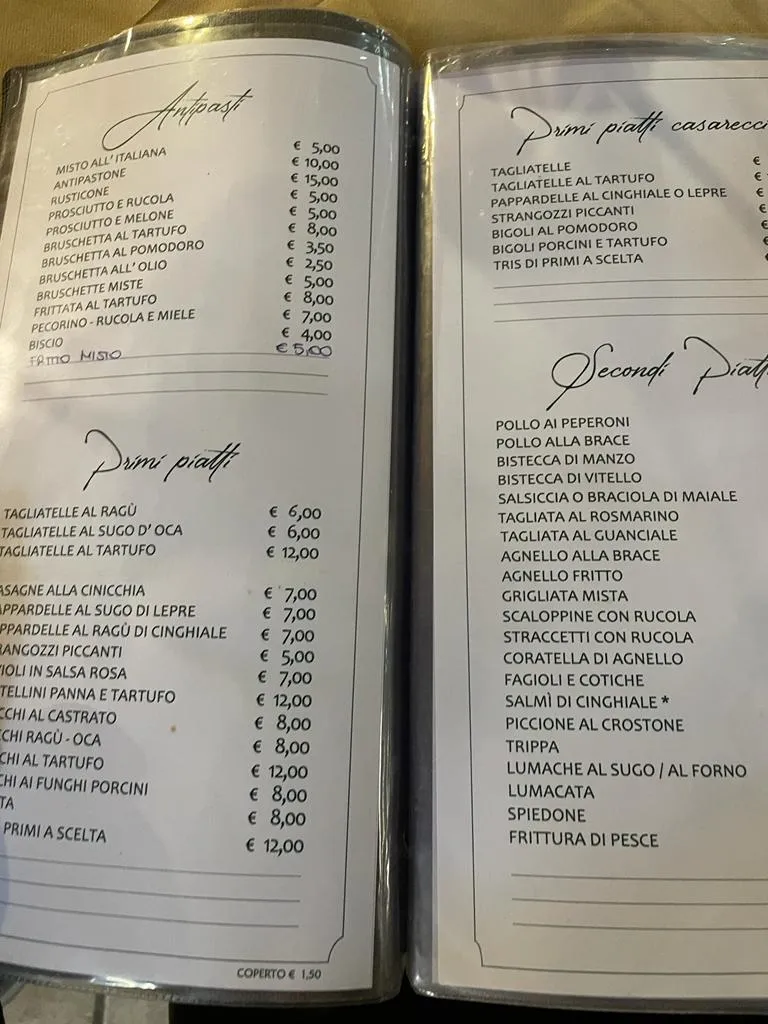 Antipasti
MISTO ALL' ITALIANA € 5,00
ANTIPASTONE € 10,00
RUSTICONE € 15,00
PROSCIUTTO E RUCOLA € 5,00
PROSCIUTTO E MELONE € 5,00
BRUSCHETTA AL TARTUFO € 8,00
BRUSCHETTA AL POMODORO € 3,50
BRUSCHETTA ALL' OLIO € 2,50
BRUSCHETTE MISTE € 5,00
FRITTATA AL TARTUFO € 8,00
PECORINO - RUCOLA E MIELE € 7,00
BISCIO € 4,00
FRITTO MISTO € 5,00
Primi piatti
TAGLIATELLE AL RAGÙ € 6,00
TAGLIATELLE AL SUGO D' OCA € 6,00
TAGLIATELLE AL TARTUFO € 12,00
ASAGNE ALLA CINICCHIA € 7,00
APPARDELLE AL SUGO DI LEPRE € 7,00
PPARDELLE AL RAGÙ DI CINGHIALE € 7,00
RANGOZZI PICCANTI € 5,00
VIOLI IN SALSA ROSA € 7,00
TELLINI PANNA E TARTUFO € 12,00
CCHI AL CASTRATO € 8,00
CHI RAGÙ - OCA € 8,00
CHI AL TARTUFO € 12,00
CHI AI FUNGHI PORCINI € 8,00
TA € 8,00
PRIMI A SCELTA € 12,00
COPERTO € 1,50
Primi piatti casarecci
TAGLIATELLE €
TAGLIATELLE AL TARTUFO €
PAPPARDELLE AL CINGHIALE O LEPRE €
STRANGOZZI PICCANTI €
BIGOLI AL POMODORO €
BIGOLI PORCINI E TARTUFO €
TRIS DI PRIMI A SCELTA €
Secondi Piatt
POLLO AI PEPERONI
POLLO ALLA BRACE
BISTECCA DI MANZO
BISTECCA DI VITELLO
SALSICCIA O BRACIOLA DI MAIALE
TAGLIATA AL ROSMARINO
TAGLIATA AL GUANCIALE
AGNELLO ALLA BRACE
AGNELLO FRITTO
GRIGLIATA MISTA
SCALOPPINE CON RUCOLA
STRACCETTI CON RUCOLA
CORATELLA DI AGNELLO
FAGIOLI E COTICHE
SALMÌ DI CINGHIALE *
PICCIONE AL CROSTONE
TRIPPA
LUMACHE AL SUGO / AL FORNO
LUMACATA
SPIEDONE
FRITTURA DI PESCE